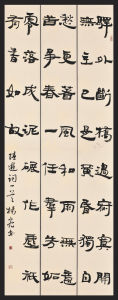 驛外斷橋邊寂寞開
無主已是黃昏獨自
愁更著風和雨無意
苦爭春一任群芳妒
零落成泥碾作塵祇
有香如故
陸遊詞